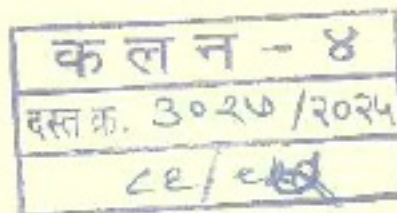 क ल न - ४
दस्त क्र. ३०२७ /२०२५
८६/